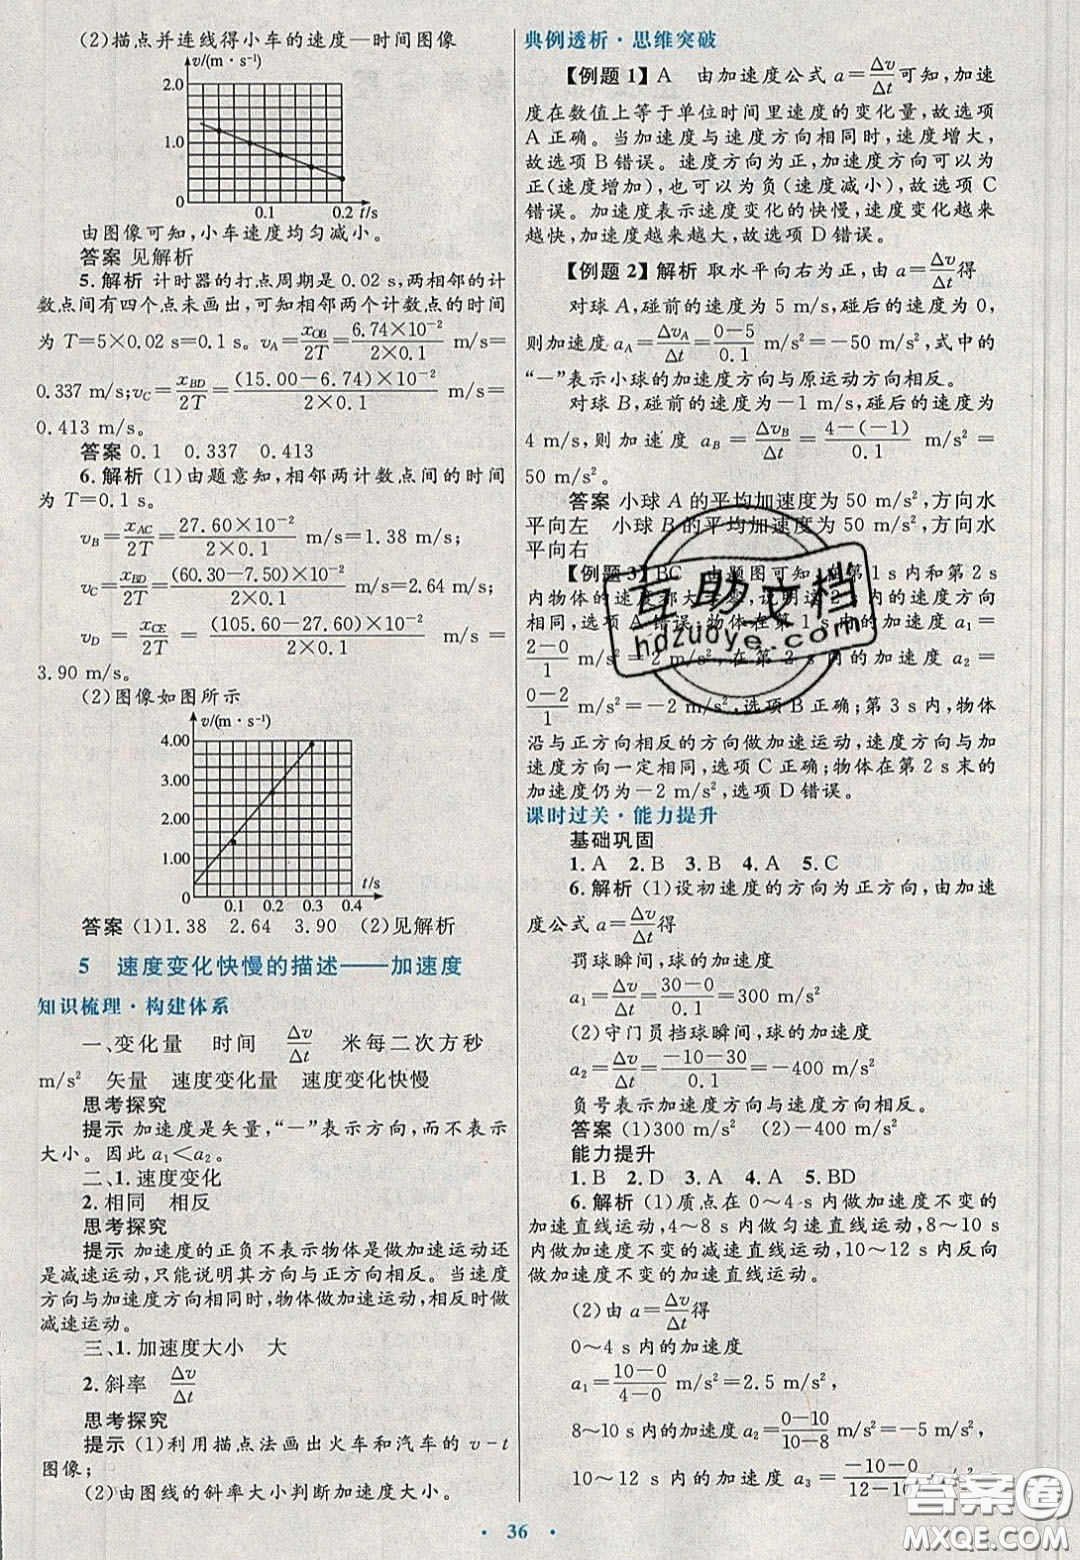 (2)描点并连线得小车的速度—时间图像
v/(m·s⁻¹)
2.0
1.0
0 0.1 0.2 t/s
由图像可知,小车速度均匀减小。
答案 见解析
5.解析 计时器的打点周期是 0.02 s,两相邻的计
数点间有四个点未画出,可知相邻两个计数点的时间
为 T=5×0.02 s=0.1 s。v_A=x_OB/2T=6.74×10⁻²/2×0.1 m/s=
0.337 m/s;v_C=x_BD/2T=(15.00-6.74)×10⁻²/2×0.1 m/s=
0.413 m/s。
答案 0.1 0.337 0.413
6.解析 (1)由题意知,相邻两计数点间的时间
为 T=0.1 s。
v_B=x_AC/2T=27.60×10⁻²/2×0.1 m/s=1.38 m/s;
v_C=x_BD/2T=(60.30-7.50)×10⁻²/2×0.1 m/s=2.64 m/s;
v_D=x_CE/2T=(105.60-27.60)×10⁻²/2×0.1 m/s=
3.90 m/s。
(2)图像如图所示
v/(m·s⁻¹)
4.00
3.00
2.00
1.00
0.1 0.2 0.3 0.4 t/s
答案 (1)1.38 2.64 3.90 (2)见解析
5 速度变化快慢的描述——加速度
知识梳理·构建体系
一、变化量 时间 Δv/Δt 米每二次方秒
m/s² 矢量 速度变化量 速度变化快慢
思考探究
提示 加速度是矢量,“-”表示方向,而不表示
大小。因此 a₁<a₂。
二、1.速度变化
2.相同 相反
思考探究
提示 加速度的正负不表示物体是做加速运动还
是减速运动,只能说明其方向与正方向相反。当速度
方向与加速度方向相同时,物体做加速运动,相反时做
减速运动。
三、1.加速度大小 大
2.斜率 Δv/Δt
思考探究
提示 (1)利用描点法画出火车和汽车的 v-t
图像;
(2)由图线的斜率大小判断加速度大小。
典例透析·思维突破
【例题 1】 A 由加速度公式 a=Δv/Δt可知,加速
度在数值上等于单位时间里速度的变化量,故选项
A 正确。当加速度与速度方向相同时,速度增大,
故选项 B 错误。速度方向为正,加速度方向可以为
正(速度增加),也可以为负(速度减小),故选项 C
错误。加速度表示速度变化的快慢,速度变化越来
越快,加速度越来越大,故选项 D 错误。
【例题 2】 解析 取水平向右为正,由 a=Δv/Δt得
对球 A,碰前的速度为 5 m/s,碰后的速度为 0,
则加速度 a_A=Δv_A/Δt=0-5/0.1 m/s²=-50 m/s²,式中的
“-”表示小球的加速度方向与原运动方向相反。
对球 B,碰前的速度为-1 m/s,碰后的速度为
4 m/s,则加速度 a_B=Δv_B/Δt=4-(-1)/0.1 m/s²=
50 m/s²。
答案 小球 A 的平均加速度为 50 m/s²,方向水
平向左 小球 B 的平均加速度为 50 m/s²,方向水
平向右
【例题 3】 BC 由题图可知,在第 1 s 内和第 2 s
内物体的速度都大于零,说明这 2 s 内速度方向
相同,选项 A 错误;物体在第 1 s 内的加速度 a₁=
2-0/1 m/s²=2 m/s²,在第 2 s 内的加速度 a₂=
0-2/1 m/s²=-2 m/s²,选项 B 正确;第 3 s 内,物体
沿与正方向相反的方向做加速运动,速度方向与加
速度方向一定相同,选项 C 正确;物体在第 2 s 末的
加速度仍为-2 m/s²,选项 D 错误。
课时过关·能力提升
基础巩固
1.A 2.B 3.B 4.A 5.C
6.解析 (1)设初速度的方向为正方向,由加速
度公式 a=Δv/Δt得
罚球瞬间,球的加速度
a₁=Δv/Δt=30-0/0.1=300 m/s²
(2)守门员挡球瞬间,球的加速度
a₂=Δv/Δt=-10-30/0.1=-400 m/s²
负号表示加速度方向与速度方向相反。
答案 (1)300 m/s² (2)-400 m/s²
能力提升
1.B 2.D 3.A 4.A 5.BD
6.解析 (1)质点在 0~4 s 内做加速度不变的
加速直线运动,4~8 s 内做匀速直线运动,8~10 s
内做加速度不变的减速直线运动,10~12 s 内反向
做加速度不变的加速直线运动。
(2)由 a=Δv/Δt得
0~4 s 内的加速度
a₁=10-0/4-0 m/s²=2.5 m/s²
8~10 s 内的加速度 a₂=0-10/10-8 m/s²=-5 m/s²
10~12 s 内的加速度 a₃=-10-0/12-10 m/s²=
· 36 ·
互助文档
hdzuoye.com
答案圈
MXQE.COM